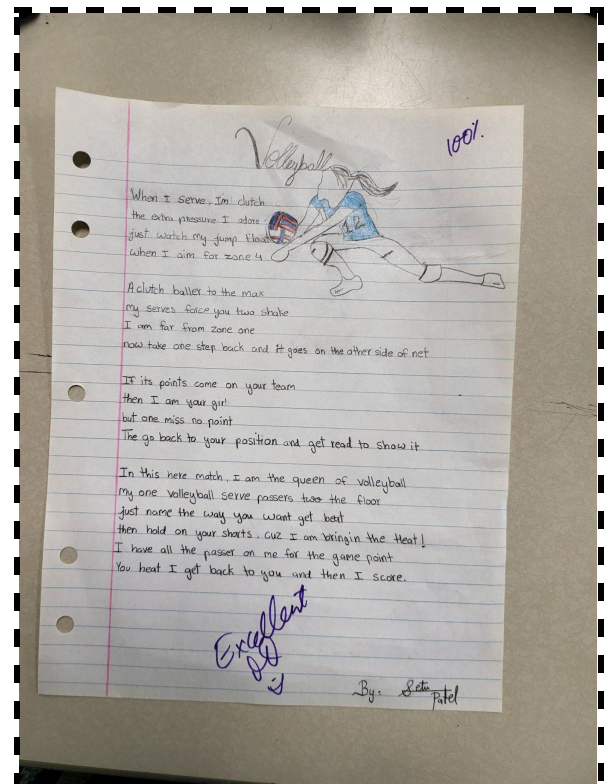 Volleyball
100%
12
When I serve, Im clutch
the extra pressure I adore
just watch my jump float
when I aim for zone 4.
A clutch baller to the max
my serves force you two shake
I am far from zone one
now take one step back and it goes on the other side of net
If its points come on your team
then I am your girl
but one miss no point
The go back to your position and get read to show it
In this here match, I am the queen of volleyball
my one volleyball serve passers two the floor
just name the way you want get beat
then hold on your shorts, cuz I am bringin the Heat!
I have all the passer on me for the game point
You heat I get back to you and then I score.
Excellent
By: Setu
Patel